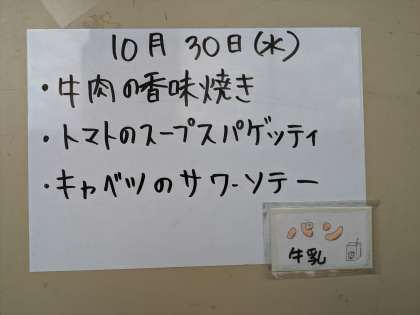 10月30日(水)
・牛肉の香味焼き
・トマトのスープスパゲッティ
・キャベツのサワーソテー
パン
牛乳